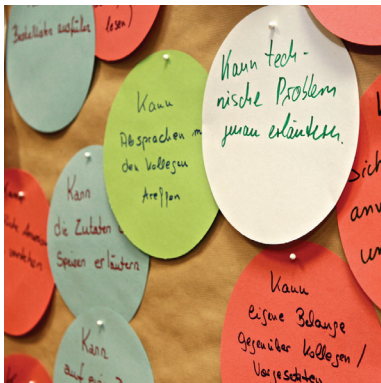 Bestellisten ausfüllen
lesen)
Kann
Absprachen m
den Kollegen
treffen
Kann tech-
nische Problem
genau erläutern.
Kann
die Zutaten
Speisen erläutern
Kann
verstehen
Sich
anv
un
Kann
eigene Belange
gegenüber Kollegen /
Vorgesetzten
Kann
auf ein